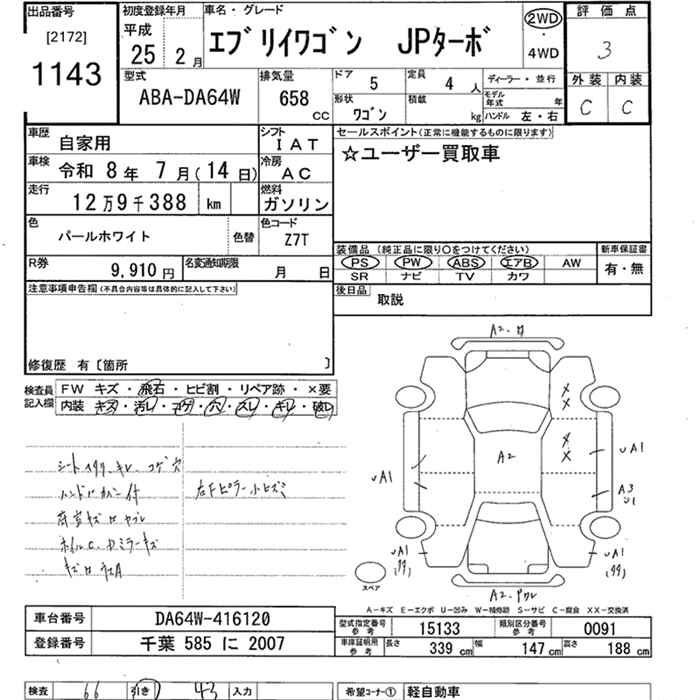 出品番号 初度登録年月 車名・グレード 評価点
[2172] 平成 25年 2月 エブリイワゴン JPターボ 2WD・4WD 3
1143
型式 排気量 ドア 5 定員 4人 ディーラー・並行 外装 内装
ABA-DA64W 658cc 形状 ワゴン 積載 kg モデル年式 年 ハンドル 左・右 C C
車歴 自家用 シフト IAT セールスポイント(正常に機能するものに限ります)
車検 令和 8年 7月(14日) 冷房 AC ☆ユーザー買取車
走行 12万9千388 km 燃料 ガソリン
色 パールホワイト 色替 色コード Z7T
装備品(純正品に限り○をつけてください) 新車保証書
R券 9,910円 名変通知期限 月 日 PS PW ABS エアB AW 有・無
SR ナビ TV カワ
注意事項申告欄(不具合内容等は具体的に記入して下さい) 後日品 取説
修復歴 有〔箇所 〕
検査員記入欄 FW キズ・飛石・ヒビ割・リペア跡・×要
内装 キズ・汚レ・コゲ・穴・スレ・キレ・破レ
A2
A2
A2
UA1
UA1
A3
U1
UA1
UA1
スペア
A-キズ E-エクボ U-凹み W-補修跡 S-サビ C-腐食 XX-交換済
車台番号 DA64W-416120 型式指定番号 参考 15133 類別区分番号 参考 0091
登録番号 千葉 585 に 2007 車庫証明用 参考 長さ 339cm 幅 147cm 高さ 188cm
検査 66 引き 43 入力 希望コーナー① 軽自動車